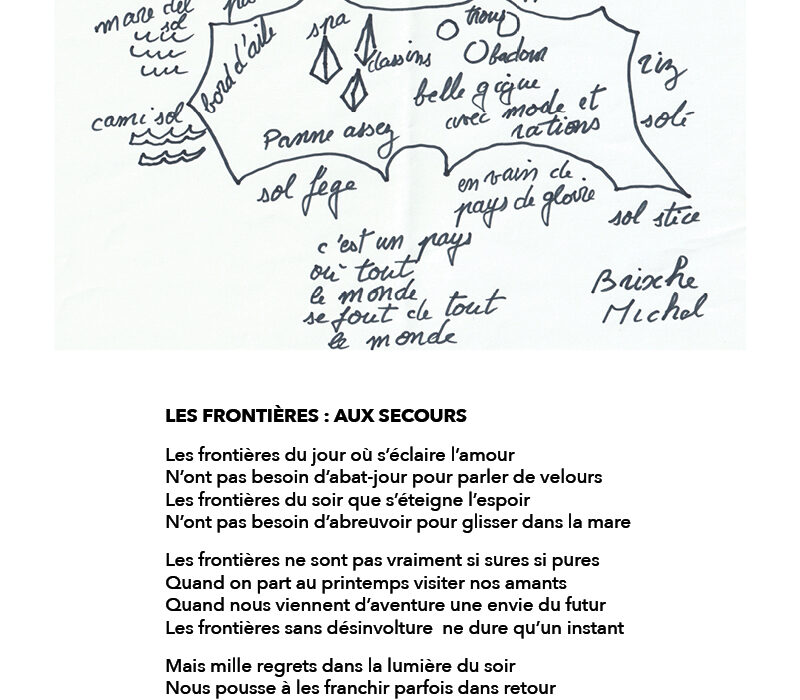 mare del
sol
bord d'aile
spa
classins
trouy
Badour
riz
solé
belle gigue
avec mode et
rations
cami sol
Panne assez
sol fège
en vain de
pays de gloire
sol stice
c'est un pays
où tout
le monde
se fout de tout
le monde
Brixhe
Michel
LES FRONTIÈRES : AUX SECOURS
Les frontières du jour où s'éclaire l'amour
N'ont pas besoin d'abat-jour pour parler de velours
Les frontières du soir que s'éteigne l'espoir
N'ont pas besoin d'abreuvoir pour glisser dans la mare
Les frontières ne sont pas vraiment si sures si pures
Quand on part au printemps visiter nos amants
Quand nous viennent d'aventure une envie du futur
Les frontières sans désinvolture  ne dure qu'un instant
Mais mille regrets dans la lumière du soir
Nous pousse à les franchir parfois dans retour